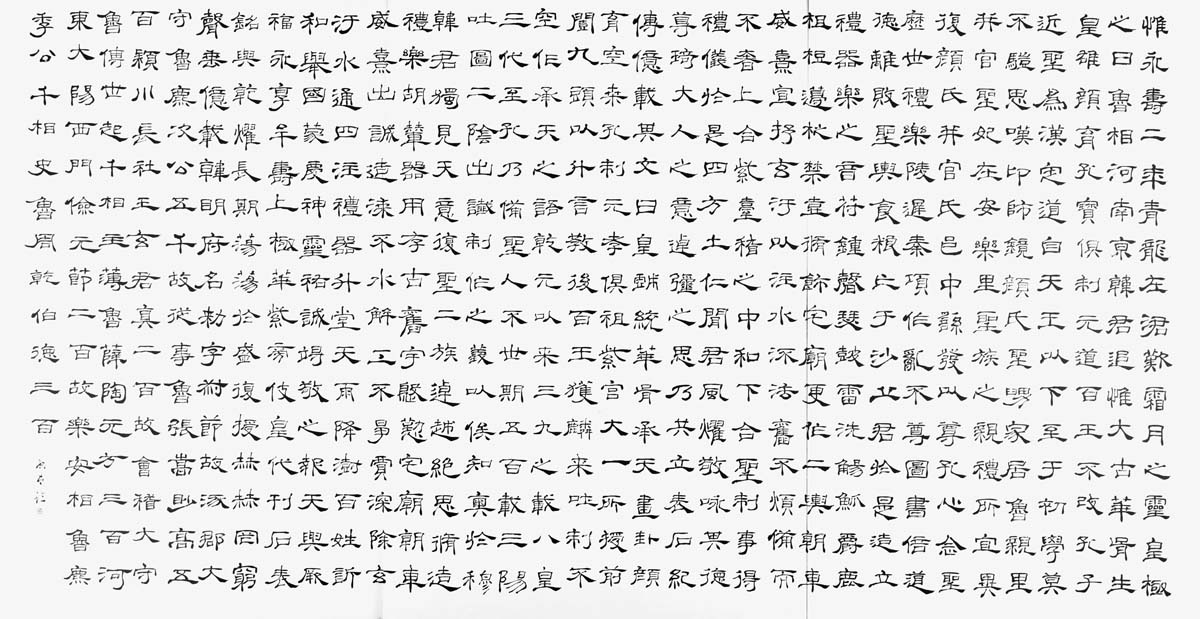 惟永壽二年青龍在涒歎霜月之靈皇極
之日魯相河南京韓君追惟大古華胥生
皇雄顏育孔寶俱制元道百王不改孔子
近聖為漢定道自天王以下至于初學莫
不驥思嘆卬師鏡顏氏聖舅家居魯親里
并官聖妃在安樂里聖族之親禮所宜異
復顏氏并官氏邑中繇發以尊孔心念聖
歷世禮樂陵遲秦項作亂不尊圖書倍道
德離敗聖輿食糧亡于沙丘君於是造立
禮器樂之音苻鍾磬瑟皷雷洗觴觚爵鹿
柤梪籩柉禁壺脩飾宅廟更作二輿朝車
威熹宣抒玄汙以注水流法舊不煩備而
不奢上合紫臺稽之中和下合聖制事得
禮儀於是四方土仁聞君風燿敬咏其德
尊琦大人之意逴彌之思乃共立表石紀
傳億載其文曰皇戲統華胥承天畫卦顏
育空桑孔制元孝俱祖紫宮大一所授前
闓九頭以什言教後百王獲麟來吐制不
空作承天之語乾元以來三九之載八皇
三代至孔乃備聖人不世期五百載三陽
吐圖二陰出讖制作之義以俟知奧於穆
韓君獨見天意復聖二族逴越絕思脩造
禮樂胡輦器用存古舊宇慇懃宅廟朝車
威熹出誠造漆不水解工不爭賈深除玄
汙水通四注禮器升堂天雨降澍百姓訢
和舉國蒙慶神靈祐誠竭敬之報天與厥
福永享牟壽上極華紫旁伎皇代刊石表
銘與乾燿長期蕩蕩於盛復授赫赫罔窮
聲垂億載韓明府名勑字叔節故涿郡大
守魯麃次公五千故從事魯張當眇高五
百潁川長社王玄君真二百故會稽大守
魯傅世起千相主薄魯薛陶元方三百河
東大陽西門儉元節二百故樂安相魯麃
季公千相史魯周乾伯德三百